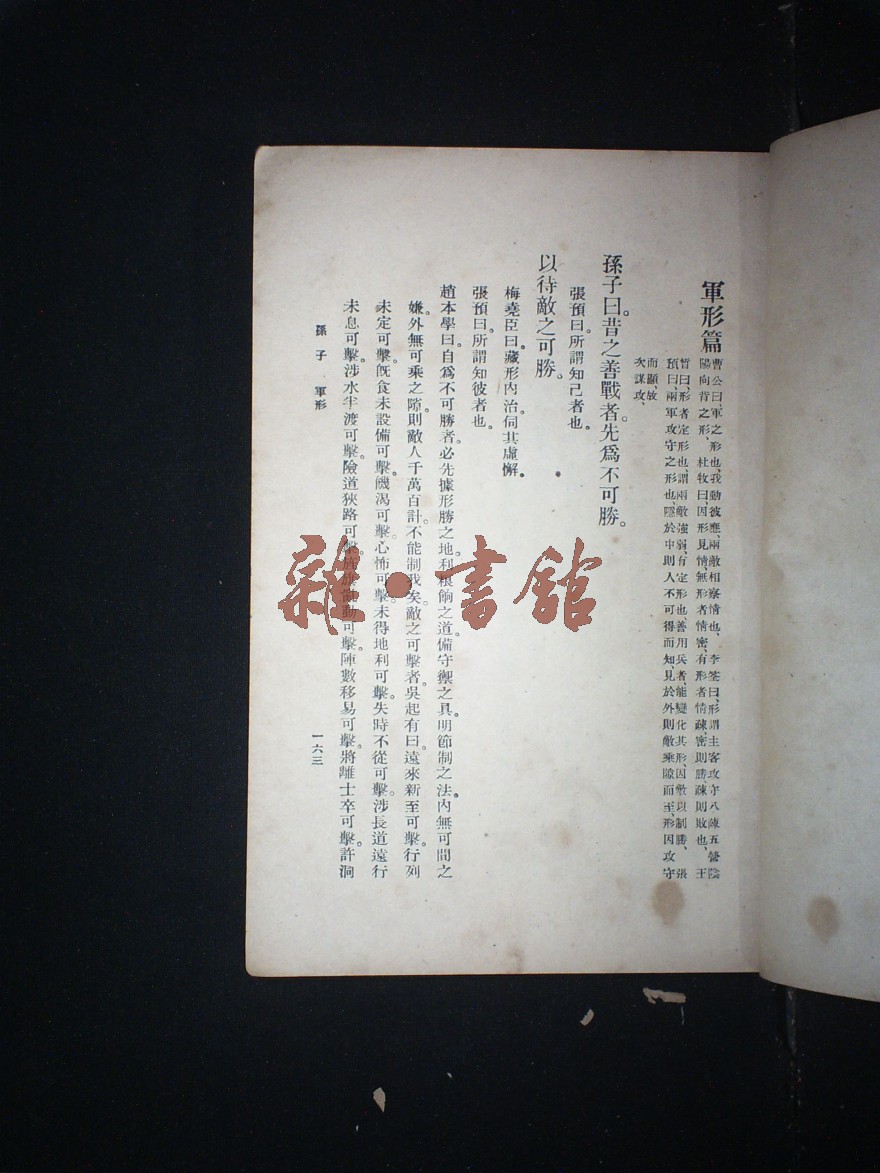 軍形篇
曹公曰、軍之形也、我動彼應、兩敵相察情也、李筌曰、形謂主客攻守八陳五營陰
陽向背之形、杜牧曰、因形見情、無形者情密、有形者情疎、密則勝、疎則敗也、王
晳曰、形者定形也、謂兩敵強弱、有定形也、善用兵者、能變化其形、因敵以制勝、張
預曰、兩軍攻守之形也、隱於中則人不可得而知、見於外則敵乘隙而至、形因攻守
而顯、故
次謀攻、
孫子曰。昔之善戰者。先爲不可勝。
張預曰。所謂知己者也。
以待敵之可勝。
梅堯臣曰。藏形內治。伺其虛懈。
張預曰。所謂知彼者也。
趙本學曰。自爲不可勝者。必先據形勝之地。利粮餉之道。備守禦之具。明節制之法。內無可間之
嫌。外無可乘之隙。則敵人千萬百計。不能制我矣。敵之可擊者。吳起有曰。遠來新至可擊。行列
未定可擊。旣食未設備可擊。饑渴可擊。心怖可擊。未得地利可擊。失時不從可擊。涉長道遠行
未息可擊。涉水半渡可擊。險道狹路可擊。旌旗亂動可擊。陣數移易可擊。將離士卒可擊。許洞
孫子 軍形
一六三
雜·書館